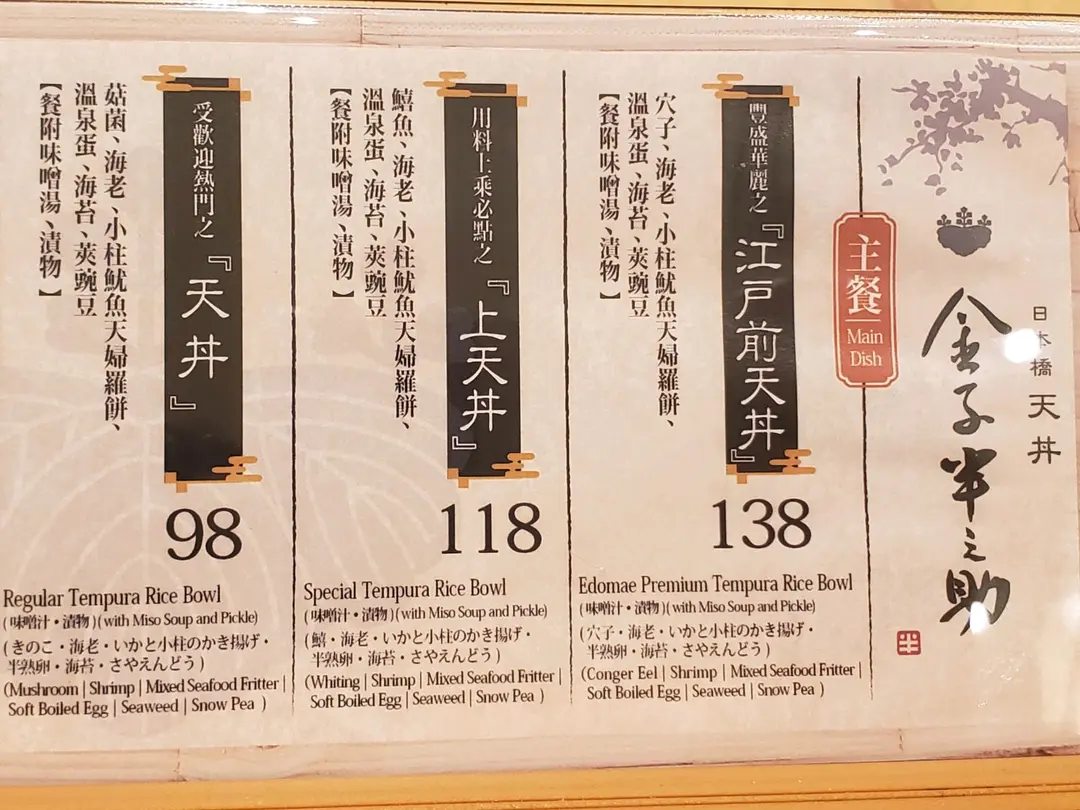 日本橋 天丼
金子半之助
半
主餐
Main
Dish
豐盛華麗之『江戸前天丼』
穴子、海老、小柱魷魚天婦羅餅、
溫泉蛋、海苔、莢豌豆
【餐附味噌湯、漬物】
138
Edomae Premium Tempura Rice Bowl
(味噌汁・漬物)(with Miso Soup and Pickle)
(穴子・海老・いかと小柱のかき揚げ・
半熟卵・海苔・さやえんどう)
(Conger Eel | Shrimp | Mixed Seafood Fritter |
Soft Boiled Egg | Seaweed | Snow Pea )
用料上乘必點之『上天丼』
鱚魚、海老、小柱魷魚天婦羅餅、
溫泉蛋、海苔、莢豌豆
【餐附味噌湯、漬物】
118
Special Tempura Rice Bowl
(味噌汁・漬物)(with Miso Soup and Pickle)
(鱚・海老・いかと小柱のかき揚げ・
半熟卵・海苔・さやえんどう)
(Whiting | Shrimp | Mixed Seafood Fritter |
Soft Boiled Egg | Seaweed | Snow Pea )
受歡迎熱門之『天丼』
菇菌、海老、小柱魷魚天婦羅餅、
溫泉蛋、海苔、莢豌豆
【餐附味噌湯、漬物】
98
Regular Tempura Rice Bowl
(味噌汁・漬物)(with Miso Soup and Pickle)
(きのこ・海老・いかと小柱のかき揚げ・
半熟卵・海苔・さやえんどう)
(Mushroom | Shrimp | Mixed Seafood Fritter |
Soft Boiled Egg | Seaweed | Snow Pea )